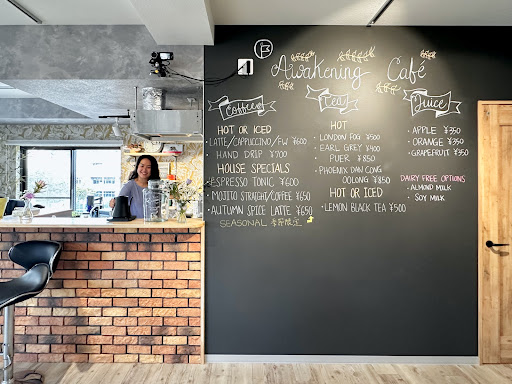 Awakening Café
Coffee
HOT OR ICED
LATTE/CAPPUCCINO/FW ¥600
HAND DRIP ¥700
HOUSE SPECIALS
ESPRESSO TONIC ¥600
MOJITO STRAIGHT/COFFEE ¥650
AUTUMN SPICE LATTE ¥650
SEASONAL 季節限定
Tea
HOT
LONDON FOG ¥500
EARL GREY ¥400
PUER ¥850
PHOENIX DAN CONG
OOLONG ¥850
HOT OR ICED
LEMON BLACK TEA ¥500
Juice
• APPLE ¥350
• ORANGE ¥350
• GRAPEFRUIT ¥350
DAIRY FREE OPTIONS
• ALMOND MILK
• SOY MILK